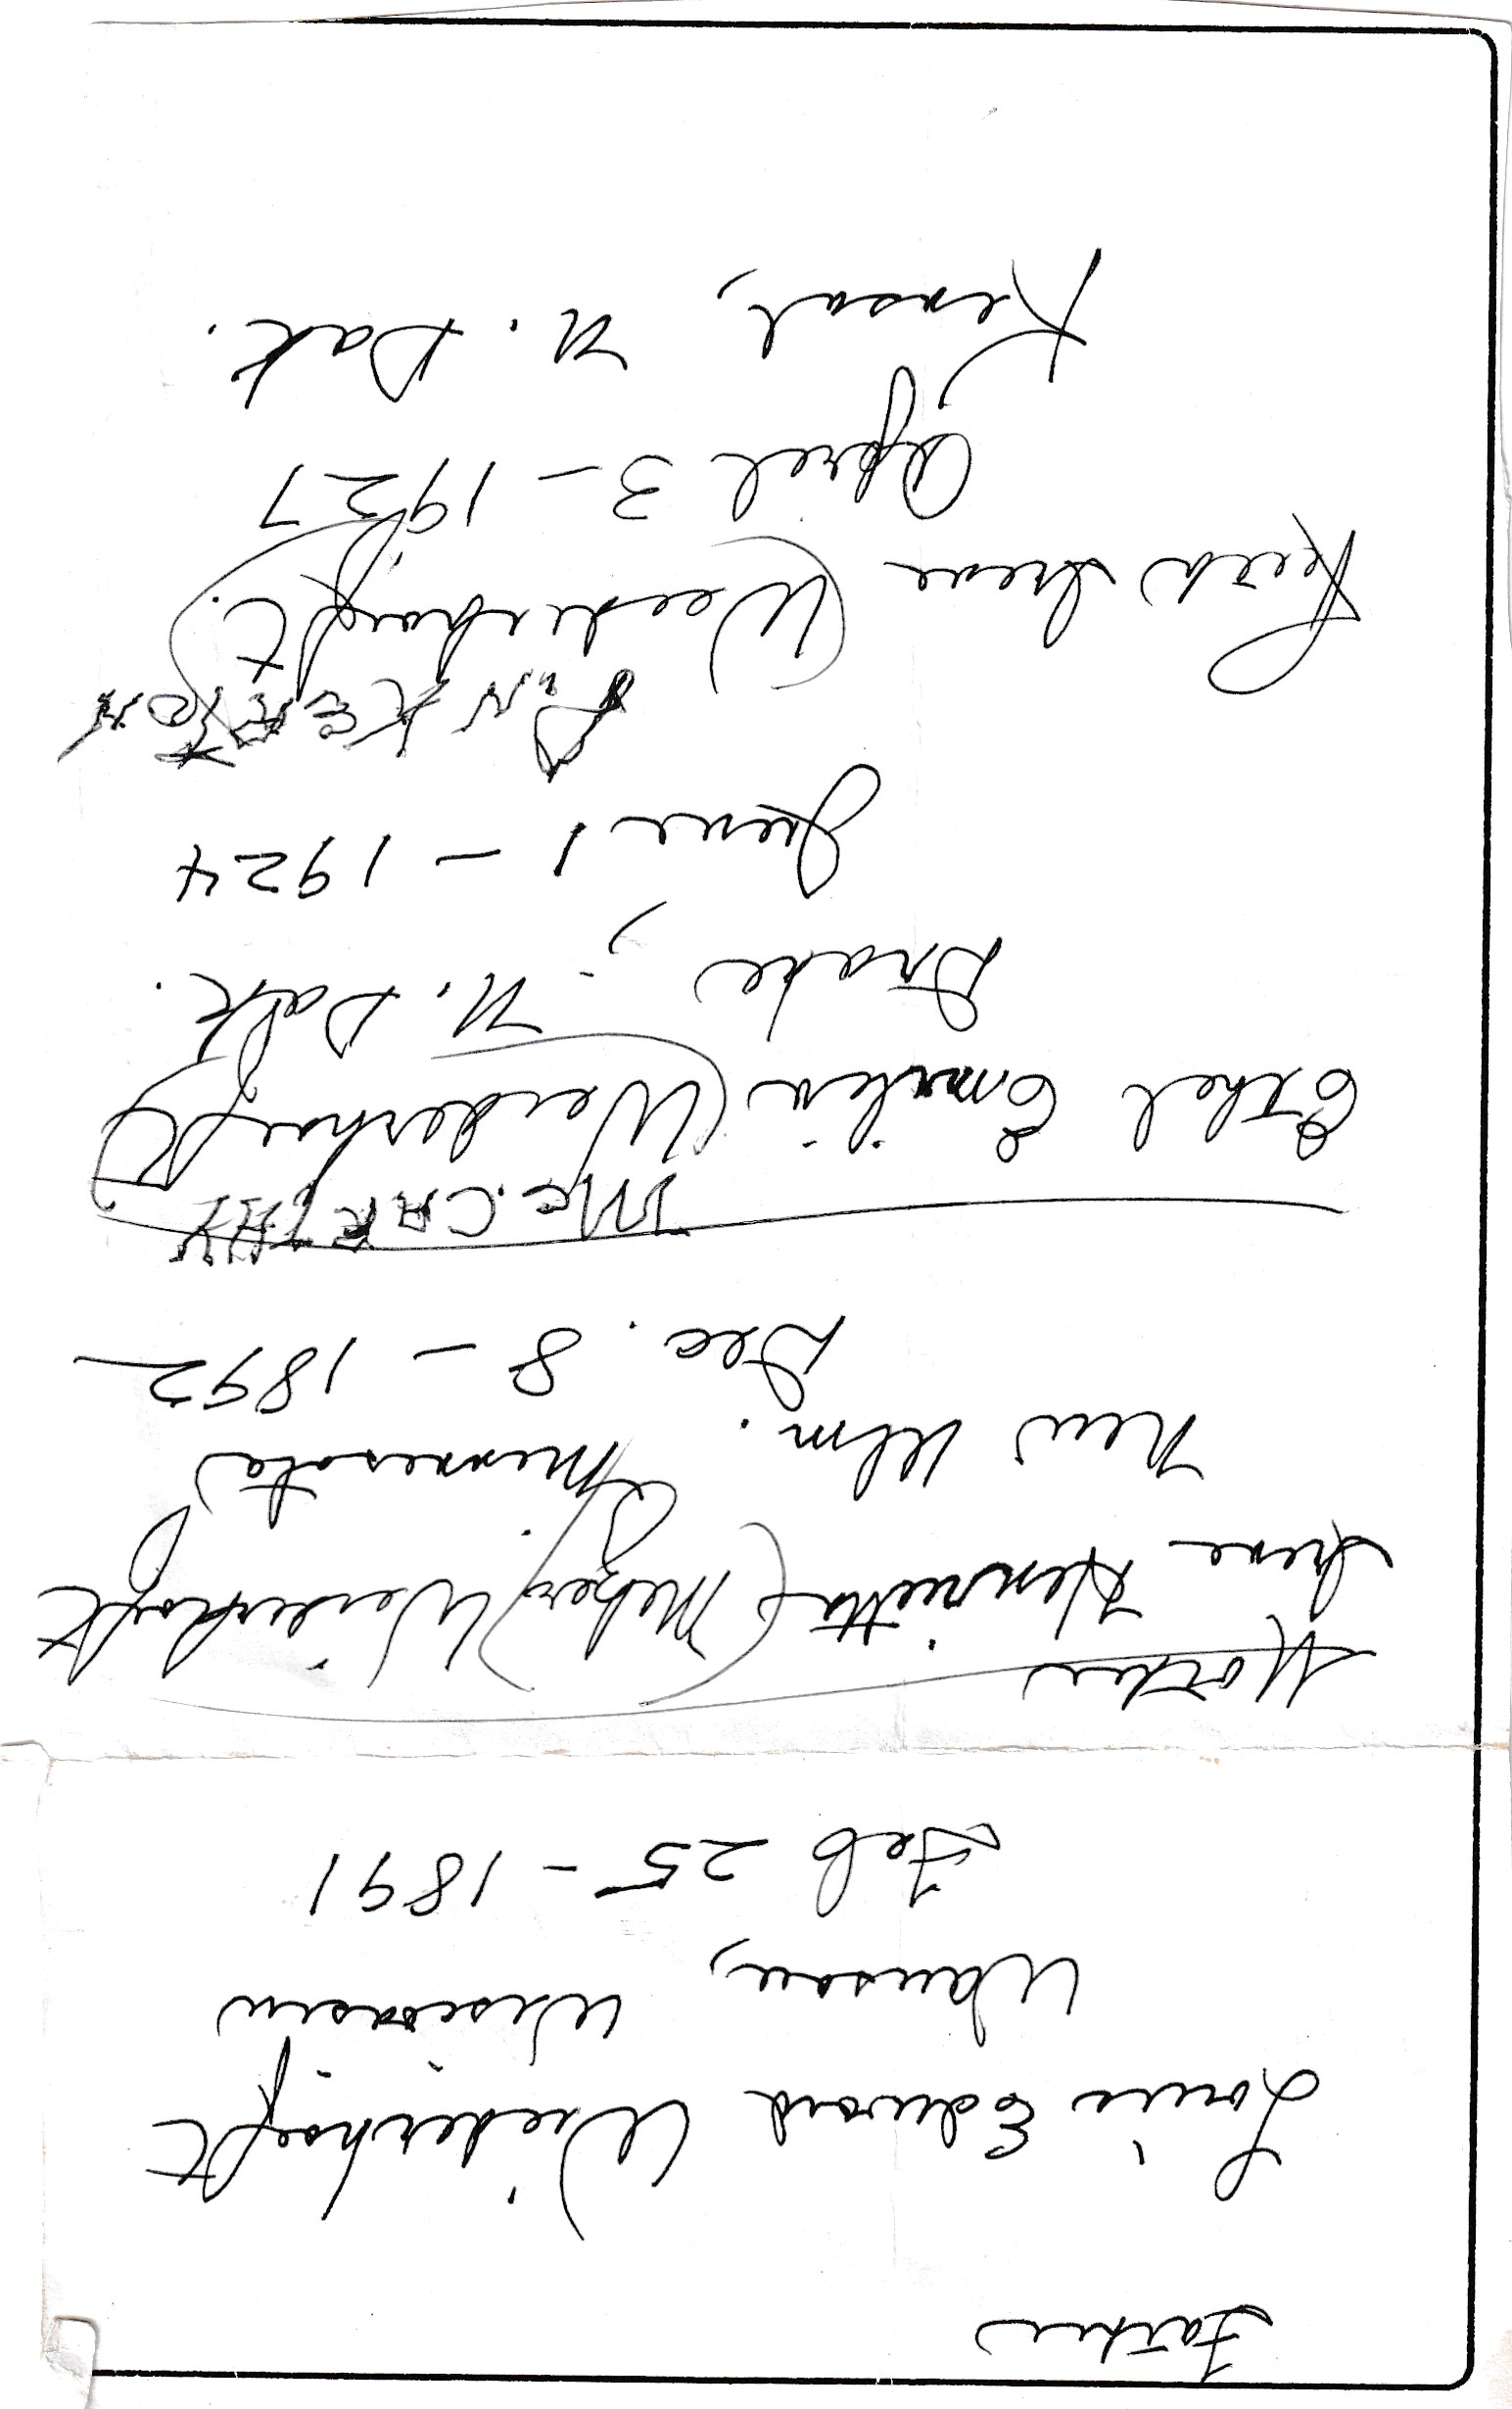 Father
Louis Edward Wiederhoeft
Wausau, Wisconsin
Feb 25 - 1891
Mother
Irene Henrietta (                ) Weiderhoeft
New Ulm. Minnesota
Dec. 8 - 1892
Mc.CARTHY
Ethel Emilia (Weiderhoeft)
Drake, N. Dak.
June 1 - 1924
PINKERTON
Ruth Irene (Weiderhoeft.)
April 3 - 1927
Kensal, N. Dak.